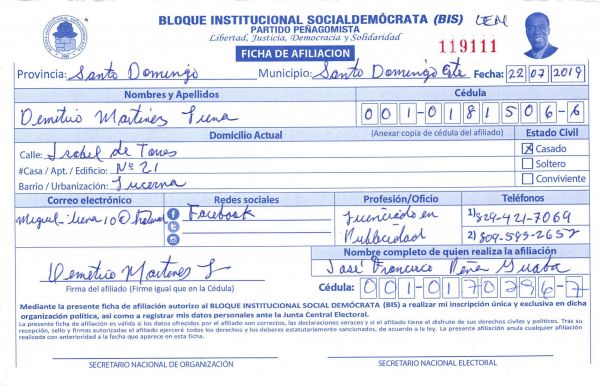 BLOQUE INSTITUCIONAL SOCIALDEMÓCRATA (BIS)
PARTIDO PEÑAGOMISTA
Libertad, Justicia, Democracia y Solidaridad
FICHA DE AFILIACION
119111
Provincia: Santo Domingo Municipio: Santo Domingo Este Fecha: 22 07 2019
Nombres y Apellidos Cédula
Demetrio Martinez 001-0181506-6
Domicilio Actual (Anexar copia de cédula del afiliado) Estado Civil
Calle: Isabel de Torres X Casado
#Casa / Apt. / Edificio: Nº 21 Soltero
Barrio / Urbanización: Lucerna Conviviente
Correo electrónico Redes sociales Profesión/Oficio Teléfonos
Facebook Licenciado en Publicidad
1) 829-421-7069
2) 809-593-2652
Nombre completo de quien realiza la afiliación
Demetrio Martinez José Francisco Peña Guaba
Firma del afiliado (Firme igual que en la Cédula) Cédula: 001-0170296-7
Mediante la presente ficha de afiliación autorizo al BLOQUE INSTITUCIONAL SOCIAL DEMÓCRATA (BIS) a realizar mi inscripción única y exclusiva en dicha
organización política, así como a registrar mis datos personales ante la Junta Central Electoral.
La presente ficha de afiliación es válido si los datos ofrecidos por el afiliado son correctos, las declaraciones veraces y si el afiliado tiene el disfrute de sus derechos civiles y políticos. Tras su
recepción, sello y firmas autorizadas el afiliado ejercerá todos los derechos y los deberes estatutariamente sancionados, de acuerdo a la ley. La presente afiliación anula cualquier afiliación
realizada con anterioridad a la fecha que aparece en esta ficha.
SECRETARIO NACIONAL DE ORGANIZACIÓN SECRETARIO NACIONAL ELECTORAL